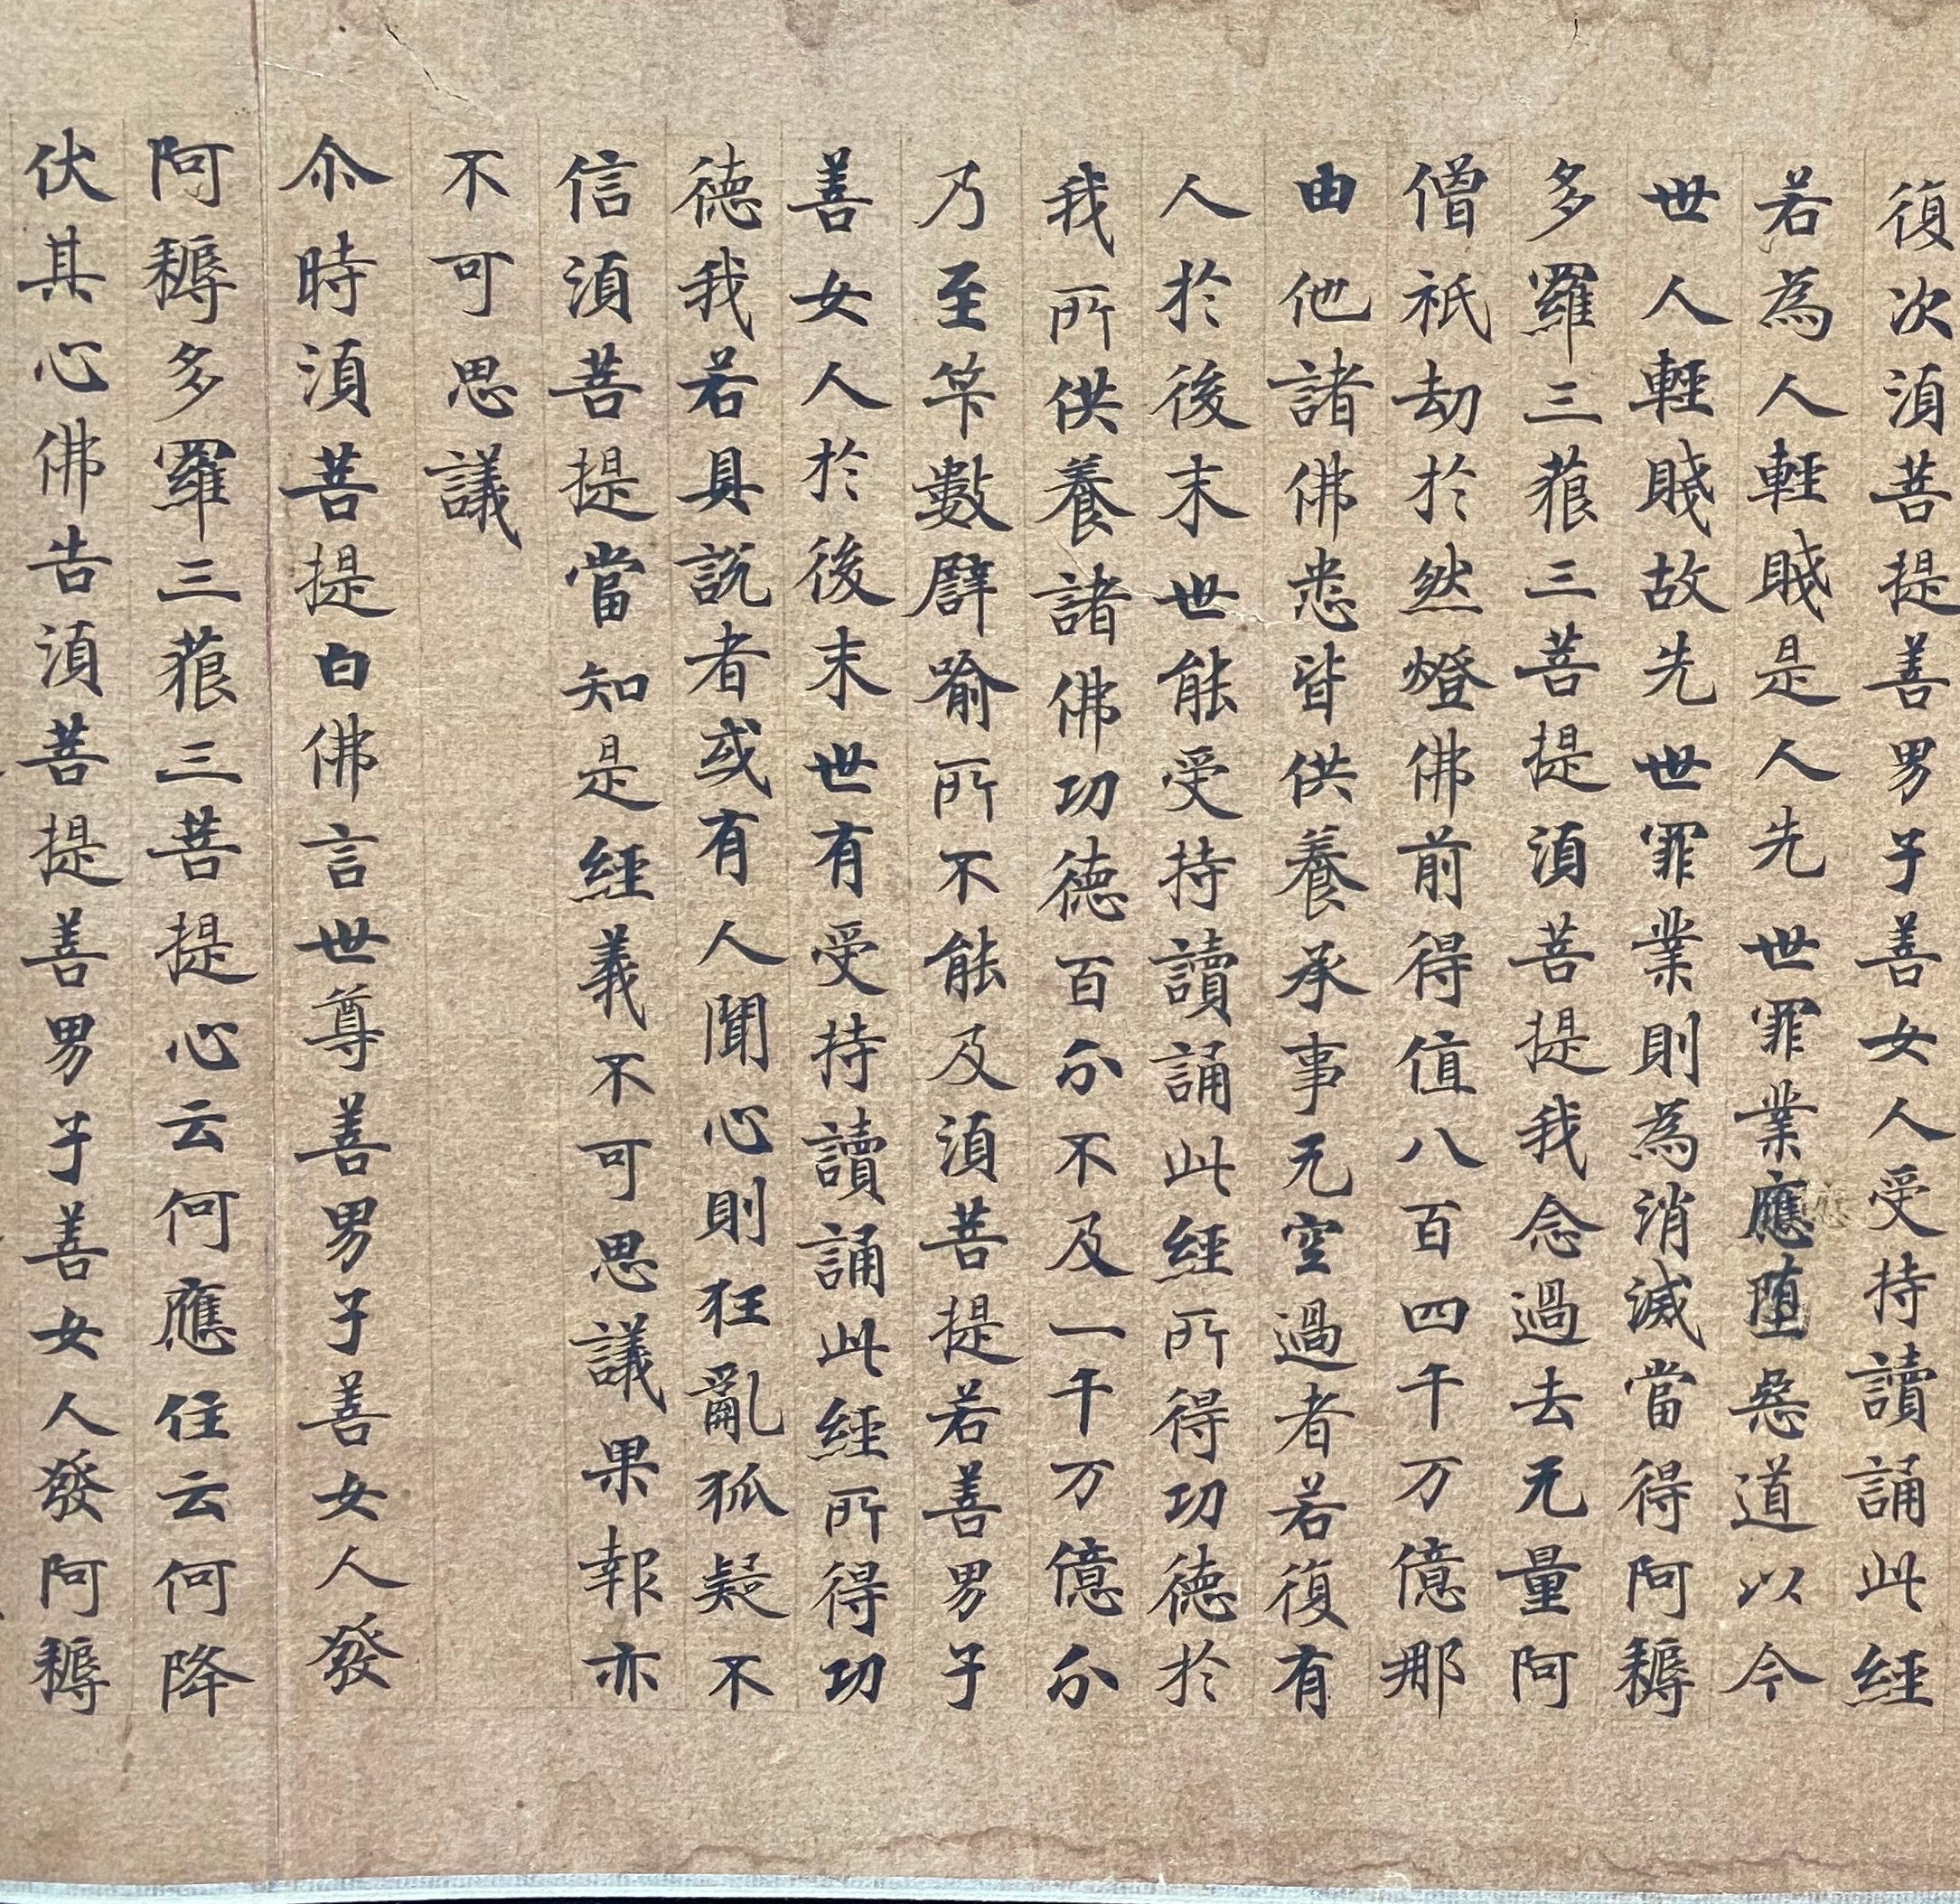 復次湏菩提善男子善女人受持讀誦此經
若為人輕賤是人先世罪業應墮惡道以今
世人輕賤故先世罪業則為消滅當得阿耨
多羅三藐三菩提湏菩提我念過去无量阿
僧祇劫於然燈佛前得值八百四千万億那
由他諸佛悉皆供養承事无空過者若復有
人於後末世能受持讀誦此經所得功德於
我所供養諸佛功德百分不及一千万億分
乃至筭數譬喻所不能及湏菩提若善男子
善女人於後末世有受持讀誦此經所得功
德我若具說者或有人聞心則狂亂狐疑不
信湏菩提當知是經義不可思議果報亦
不可思議
尒時湏菩提白佛言世尊善男子善女人發
阿耨多羅三藐三菩提心云何應住云何降
伏其心佛告湏菩提善男子善女人發阿耨